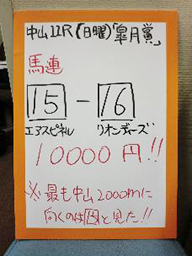 中山11R(日曜)「皐月賞」
馬連
15-16
エアスピネル リオンディーズ
10000円!!
※最も中山2000mに
向くのは⑮と見た!!